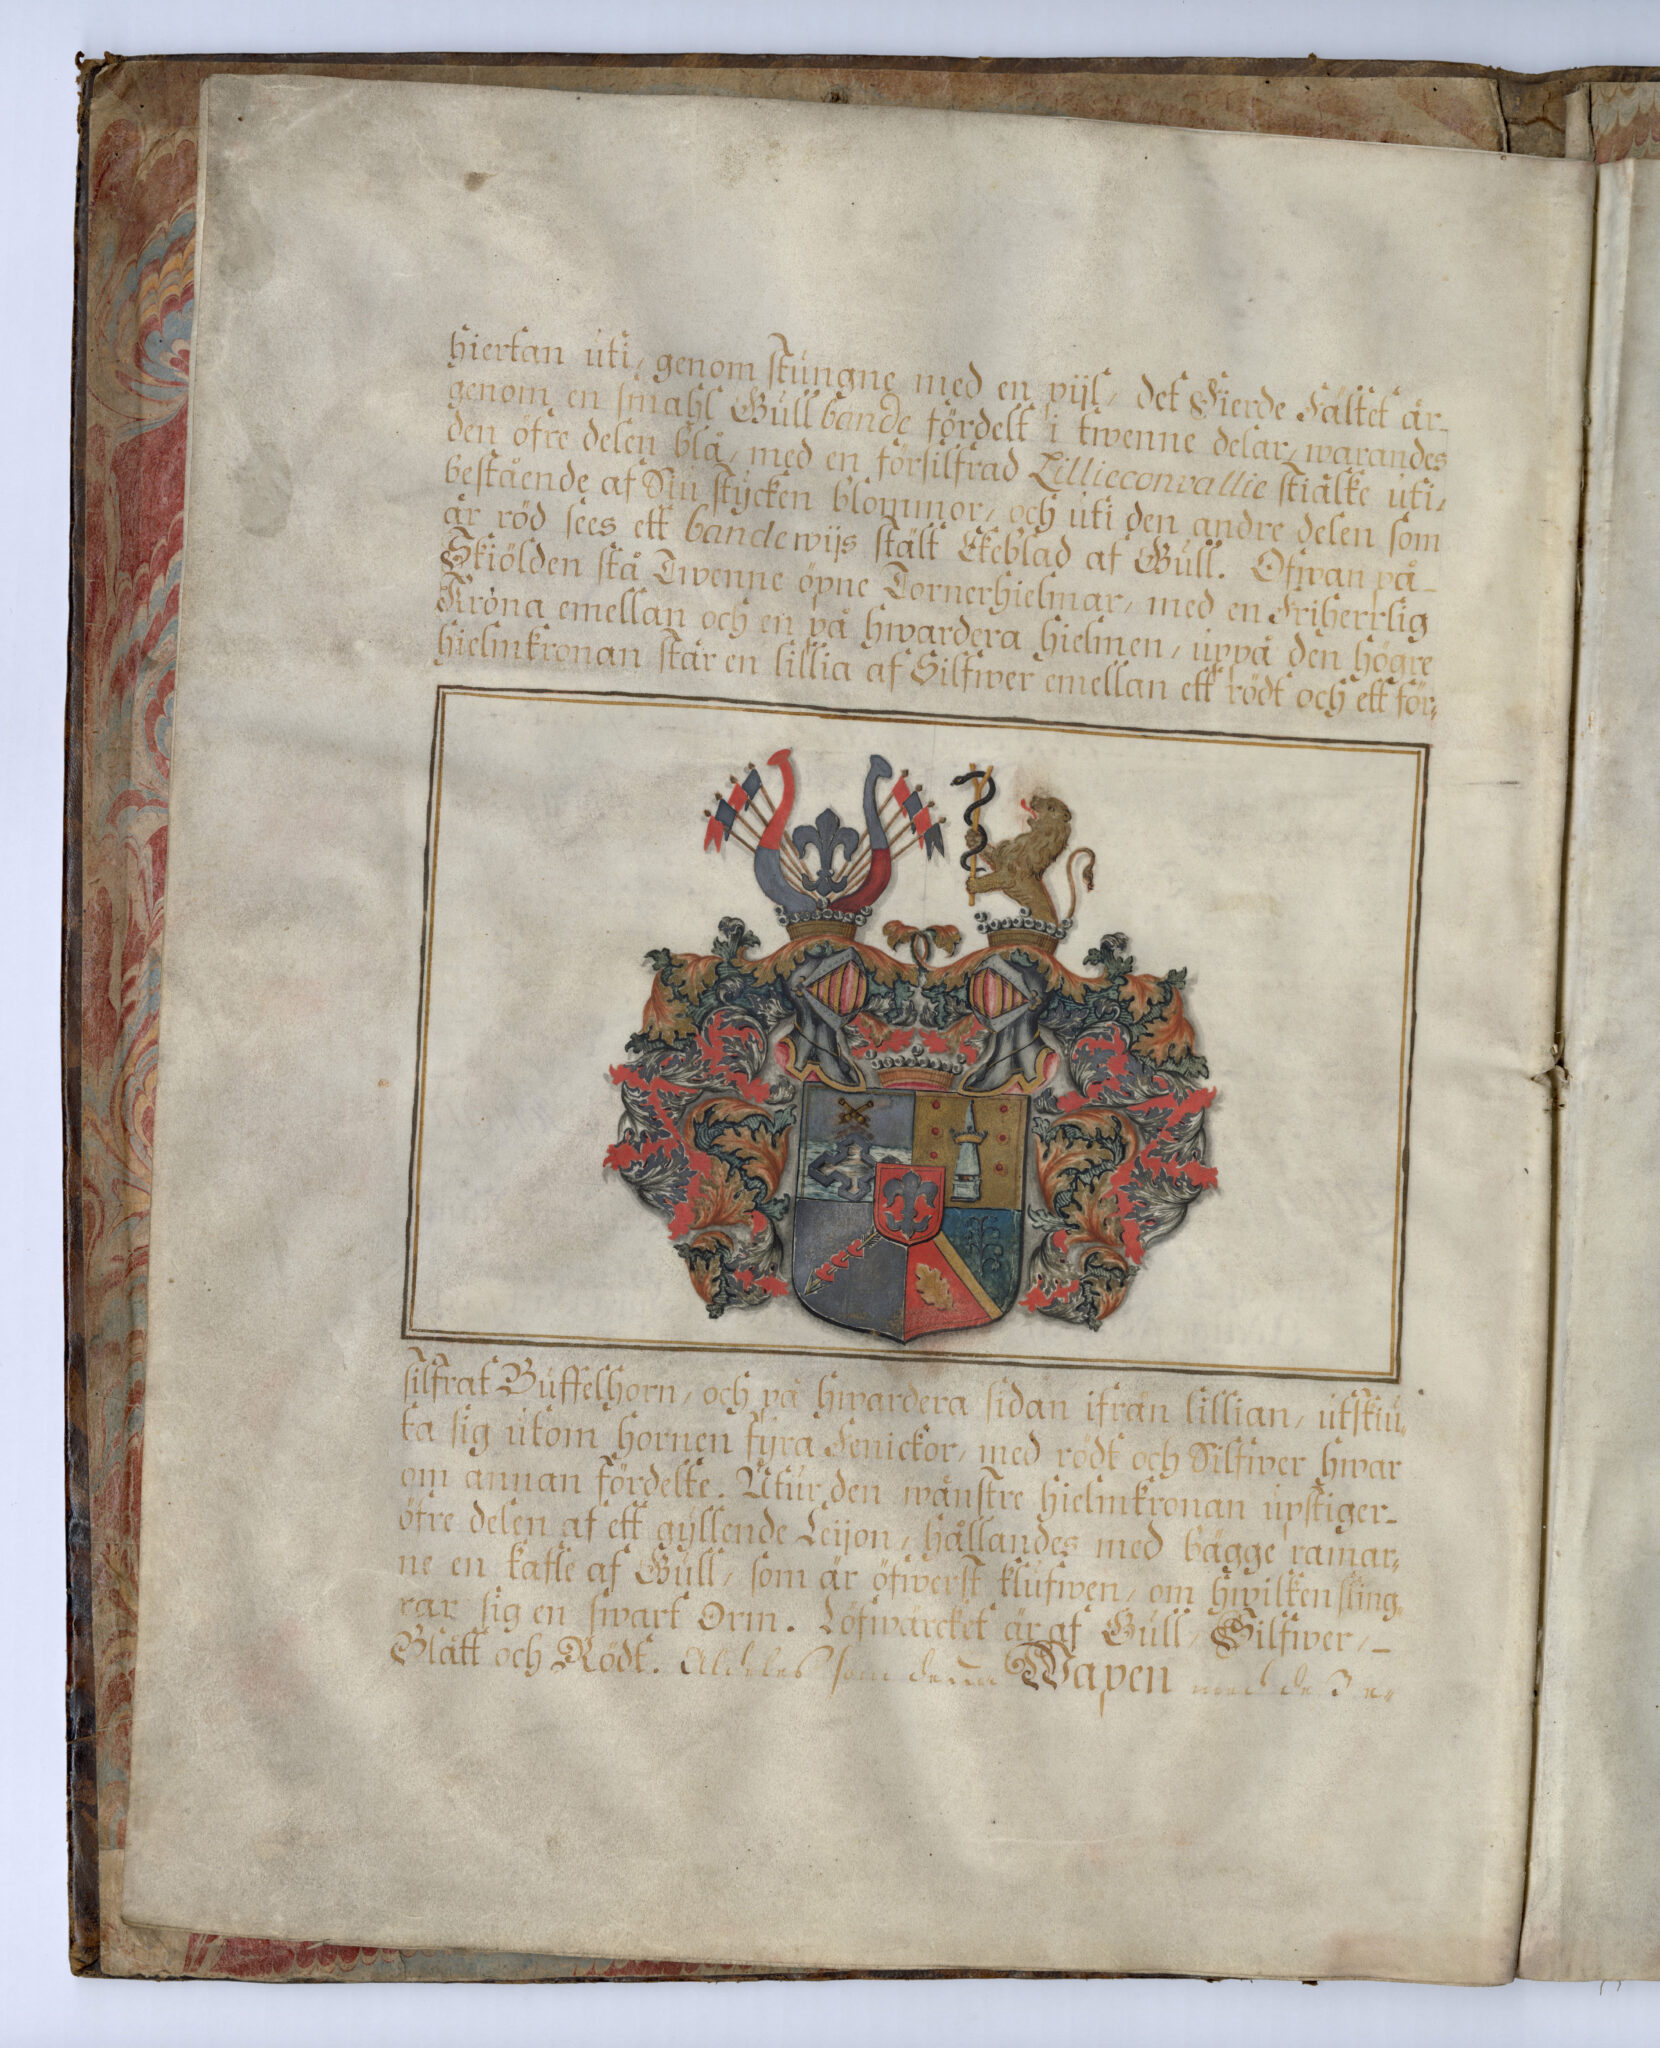 hiertan uti, genom stungne med en piil, det Fierde Fältet är
genom en smahl Gull bande fördelt i twenne delar, warandes
den öfre delen blå, med en försilfrad Lillieconvallie stiälke uti,
bestående af Siu stycken blommor, och uti den andre delen som
är röd sees ett bandewijs stält Ekeblad af Gull. Ofwan på
Skiölden stå Twenne öpne Tornerhielmar, med en Friherrlig
Krona emellan och en på hwardera hielmen, uppå den högre
hielmkronan står en lillia af Silfwer emellan ett rödt och ett för-
silfrat Buffelhorn, och på hwardera sidan ifrån lillian, utskiu-
ta sig utom hornen fyra Fenickor, med rödt och Silfwer hwar
om annan fördelte. Utur den wänstre hielmkronan upstiger
öfre delen af ett gyllende Leijon, hållandes med bägge ramar-
ne en kafle af Gull, som är öfwerst klufwen, om hwilken sling-
rar sig en swart Orm. Löfwärcket är af Gull, Silfwer,
Blått och Rödt. Aldeles som denna Wapen med de